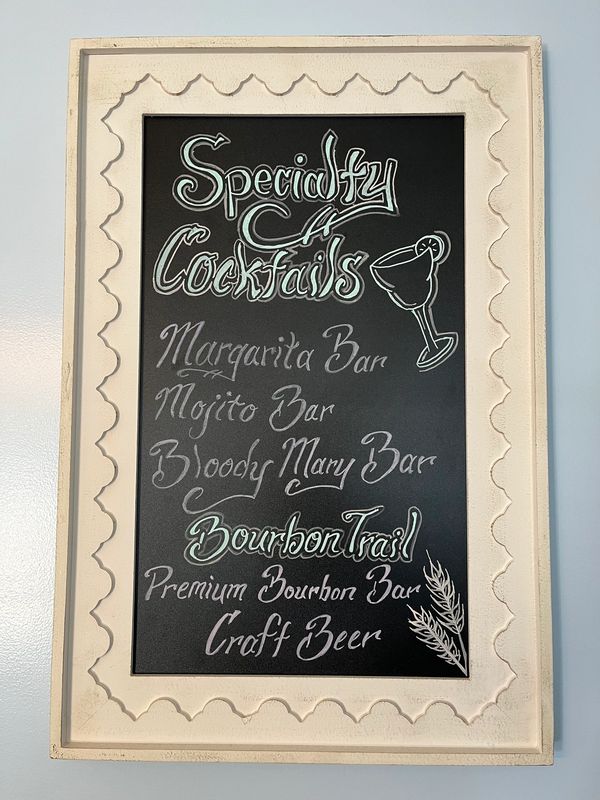 Specialty
Cocktails
Margarita Bar
Mojito Bar
Bloody Mary Bar
Bourbon Trail
Premium Bourbon Bar
Craft Beer